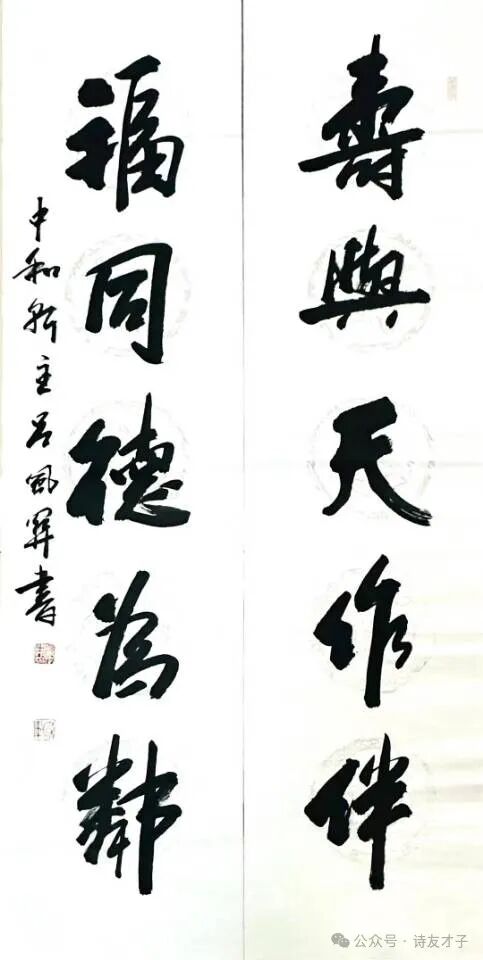 壽與天作伴
福同德為鄰
中和軒主呂風翠書
公众号·诗友才子